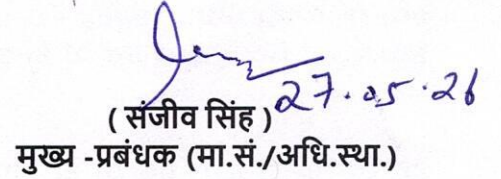 27.05.26
( संजीव सिंह )
मुख्य -प्रबंधक (मा.सं./अधि.स्था.)